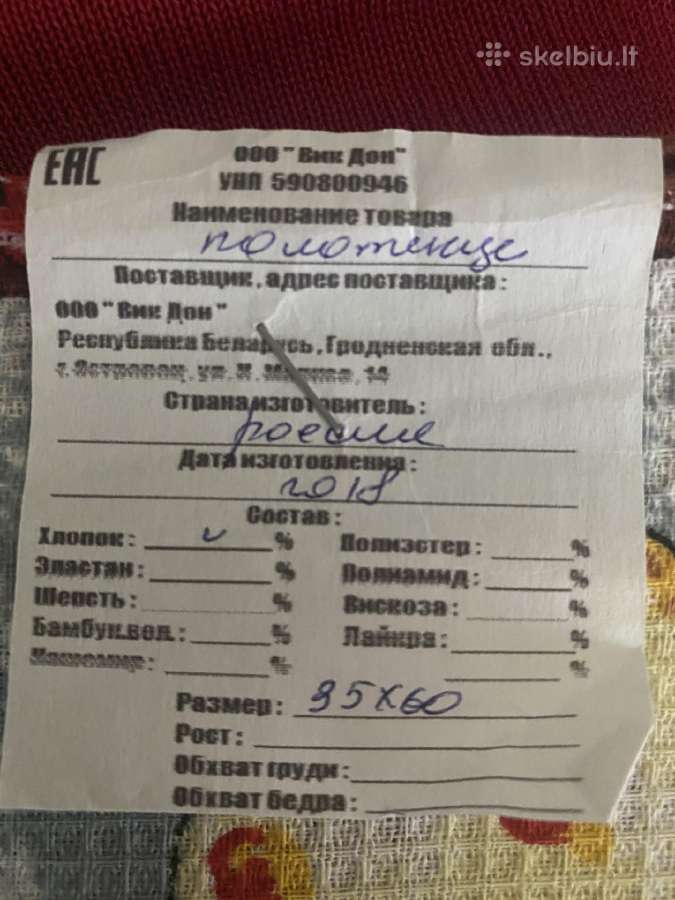 skelbiu.lt
EAC
ООО "Вик Дон"
УНП 590800946
Наименование товара
полотенце
Поставщик, адрес поставщика:
ООО "Вик Дон"
Республика Беларусь, Гродненская обл.,
г. Островец, ул. К. Маркса, 14
Страна изготовитель:
россия
Дата изготовления:
2018
Состав:
Хлопок: v % Полиэстер: %
Эластан: % Полиамид: %
Шерсть: % Вискоза: %
Бамбук.вол.: % Лайкра: %
Кашемир: % %
Размер: 35х60
Рост:
Обхват груди:
Обхват бедра: